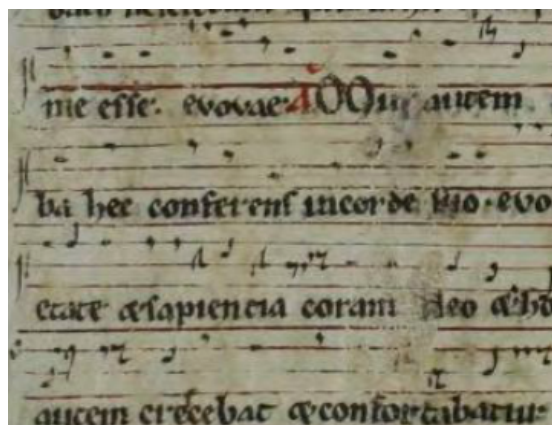 me esse. evovae. A autem
ba hec conferens in corde suo. evo
etate & sapiencia coram deo & ho
autem crescebat & confortabatur